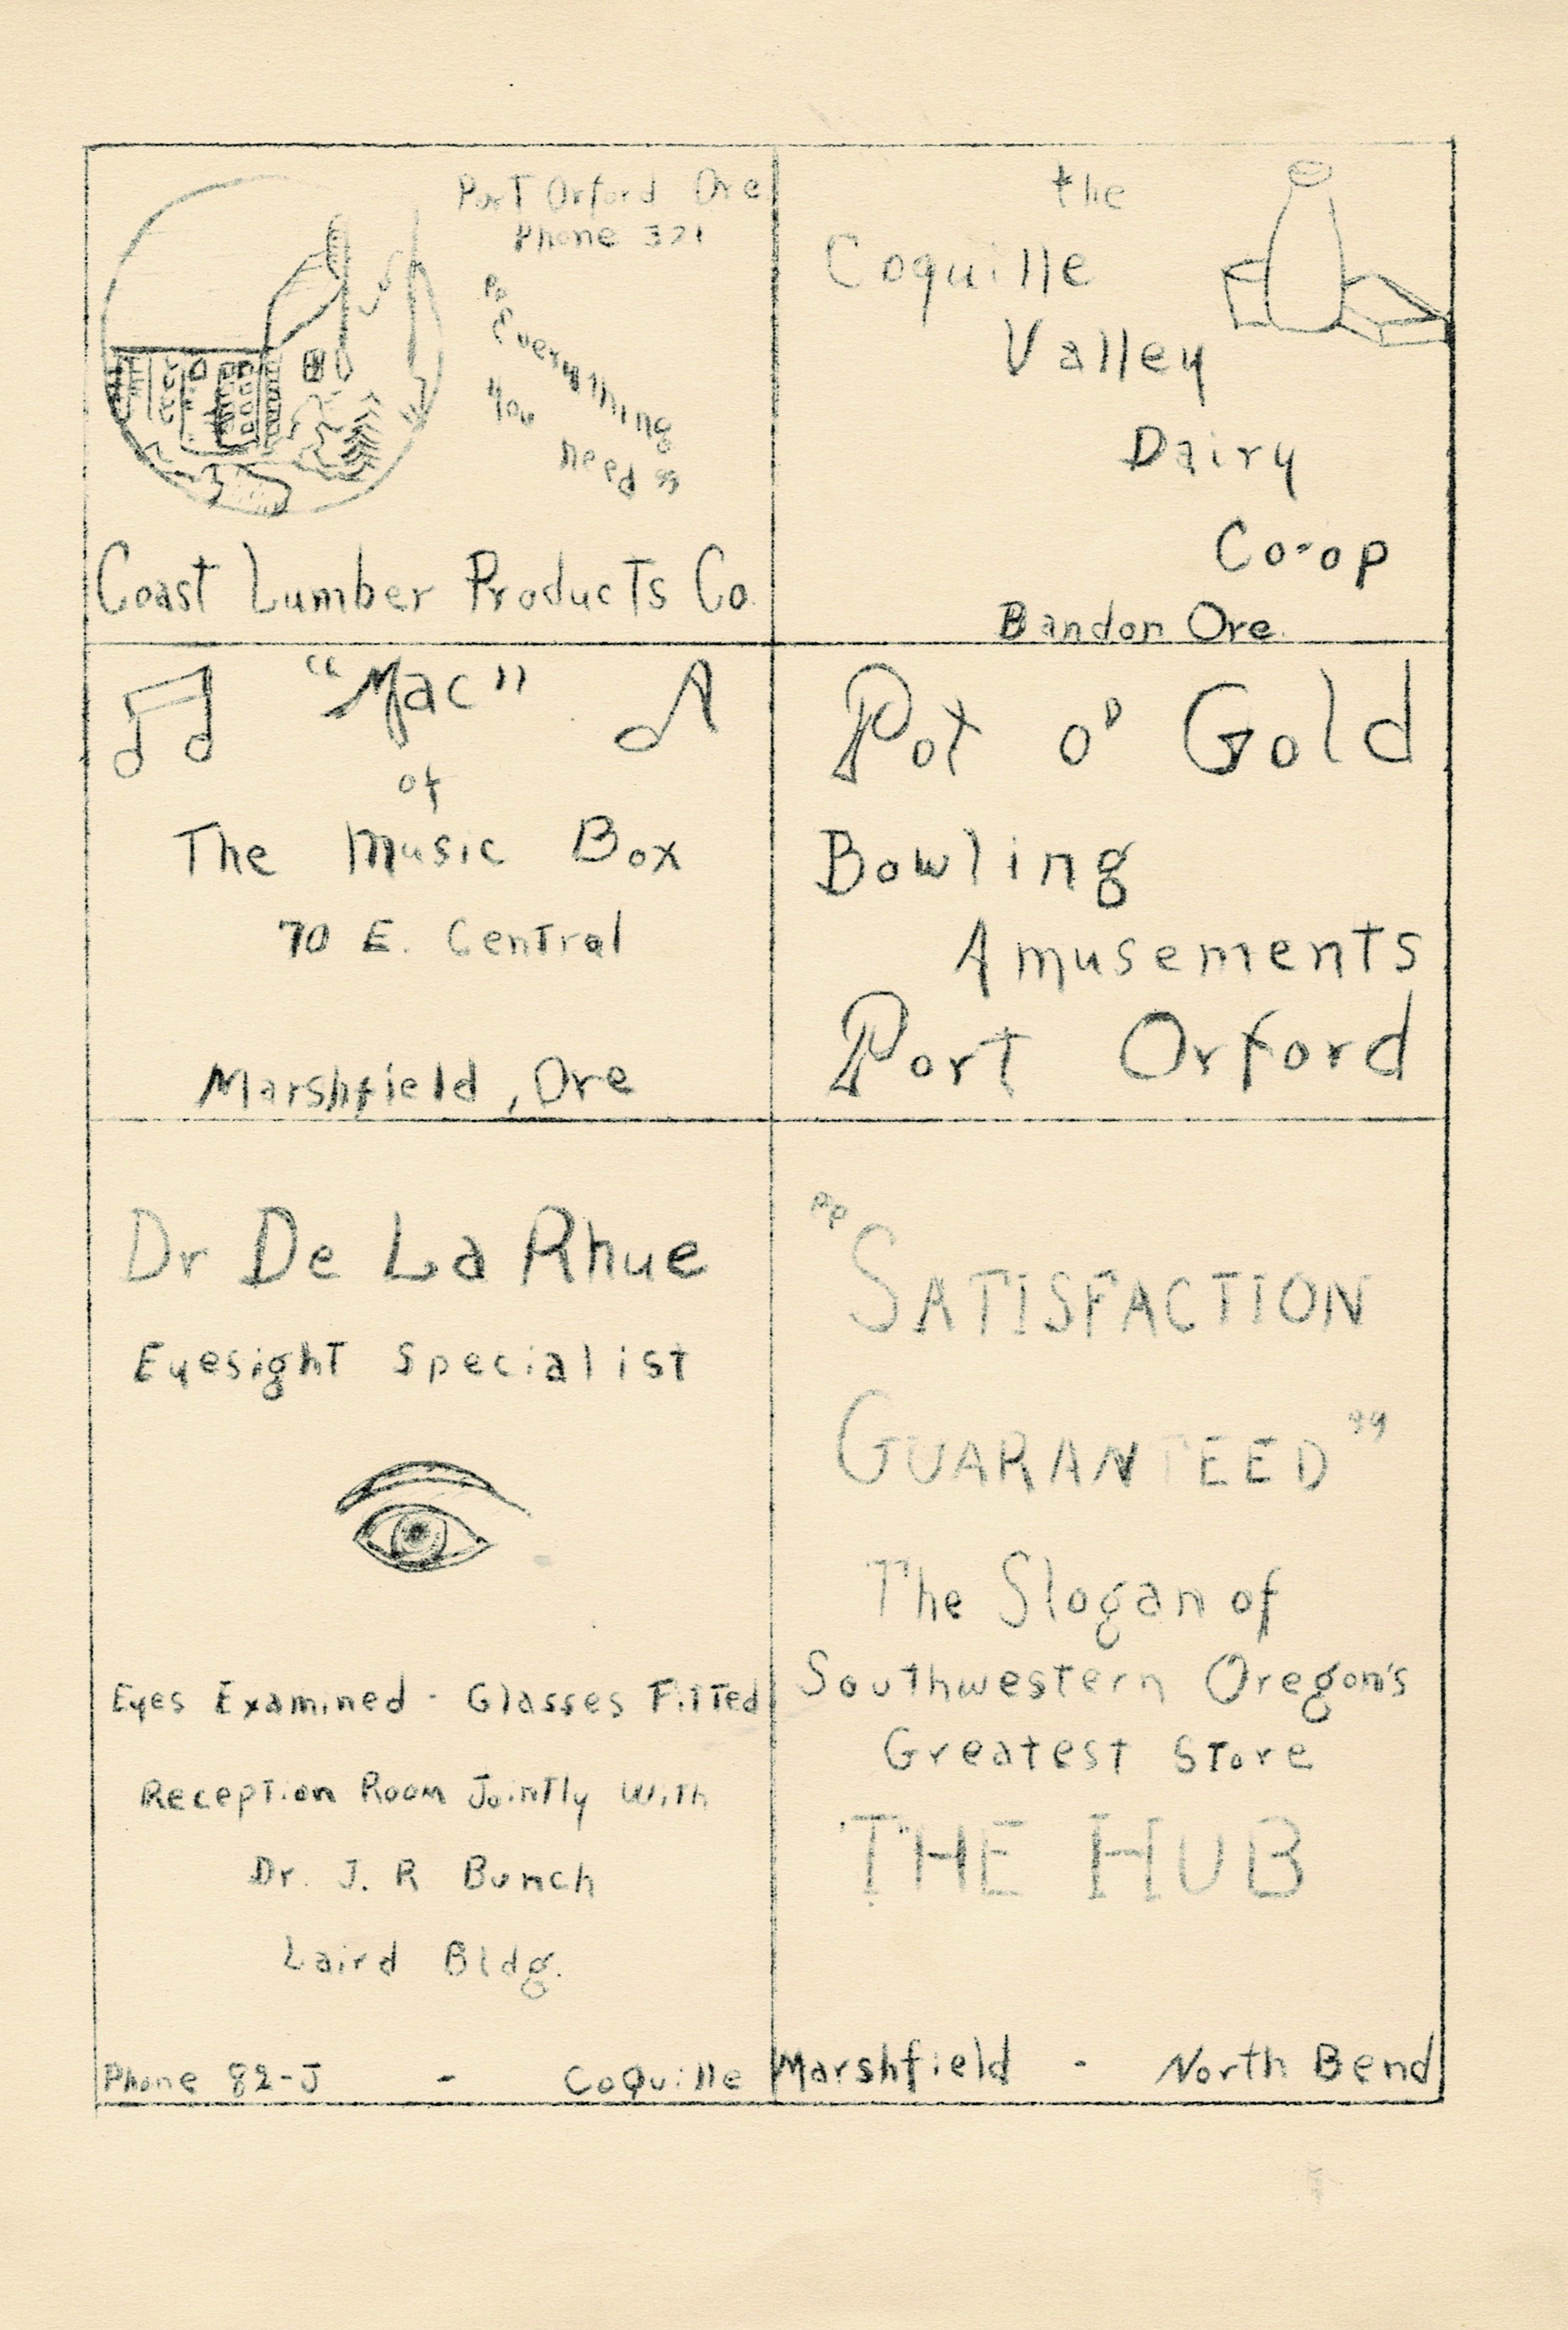 Port Orford Ore.
Phone 321
"Everything
you
need"
Coast Lumber Products Co.
the
Coquille
Valley
Dairy
Co-op
Bandon Ore.
"Mac"
of
The Music Box
70 E. Central
Marshfield, Ore
Pot o' Gold
Bowling
Amusements
Port Orford
Dr De La Rhue
Eyesight Specialist
Eyes Examined - Glasses Fitted
Reception Room Jointly With
Dr. J. R Bunch
Laird Bldg.
Phone 82-J - Coquille
"SATISFACTION
GUARANTEED"
The Slogan of
Southwestern Oregon's
Greatest Store
THE HUB
Marshfield - North Bend